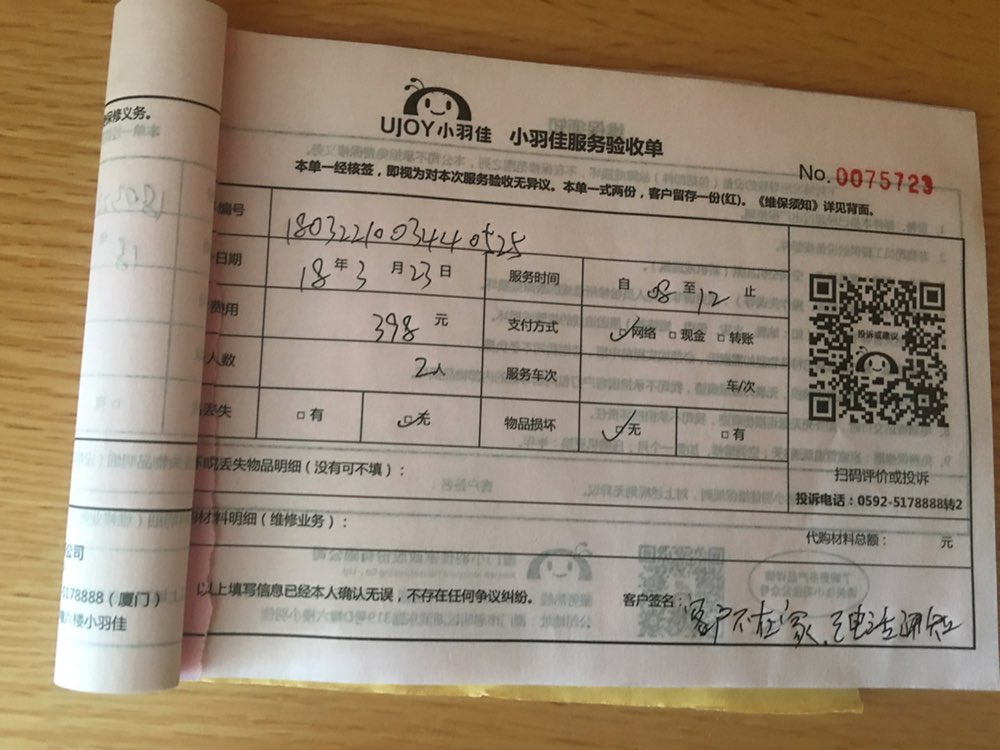 UJOY小羽佳 小羽佳服务验收单
No. 0075723
本单一经核签，即视为对本次服务验收无异议。本单一式两份，客户留存一份(红)。《维保须知》详见背面。
编号 1803221003440525
日期 18年3月23日 服务时间 自08至12止
费用 398元 支付方式 网络 现金 转账
人数 2人 服务车次 车/次
丢失 有 无 物品损坏 无 有
投诉或建议
扫码评价或投诉
投诉电话：0592-5178888转2
丢失物品明细（没有可不填）：
材料明细（维修业务）：
代购材料总额： 元
以上填写信息已经本人确认无误，不存在任何争议纠纷。 客户签名：
客户不在家，已电话通知
保修义务。
公司
5178888（厦门）
六楼小羽佳